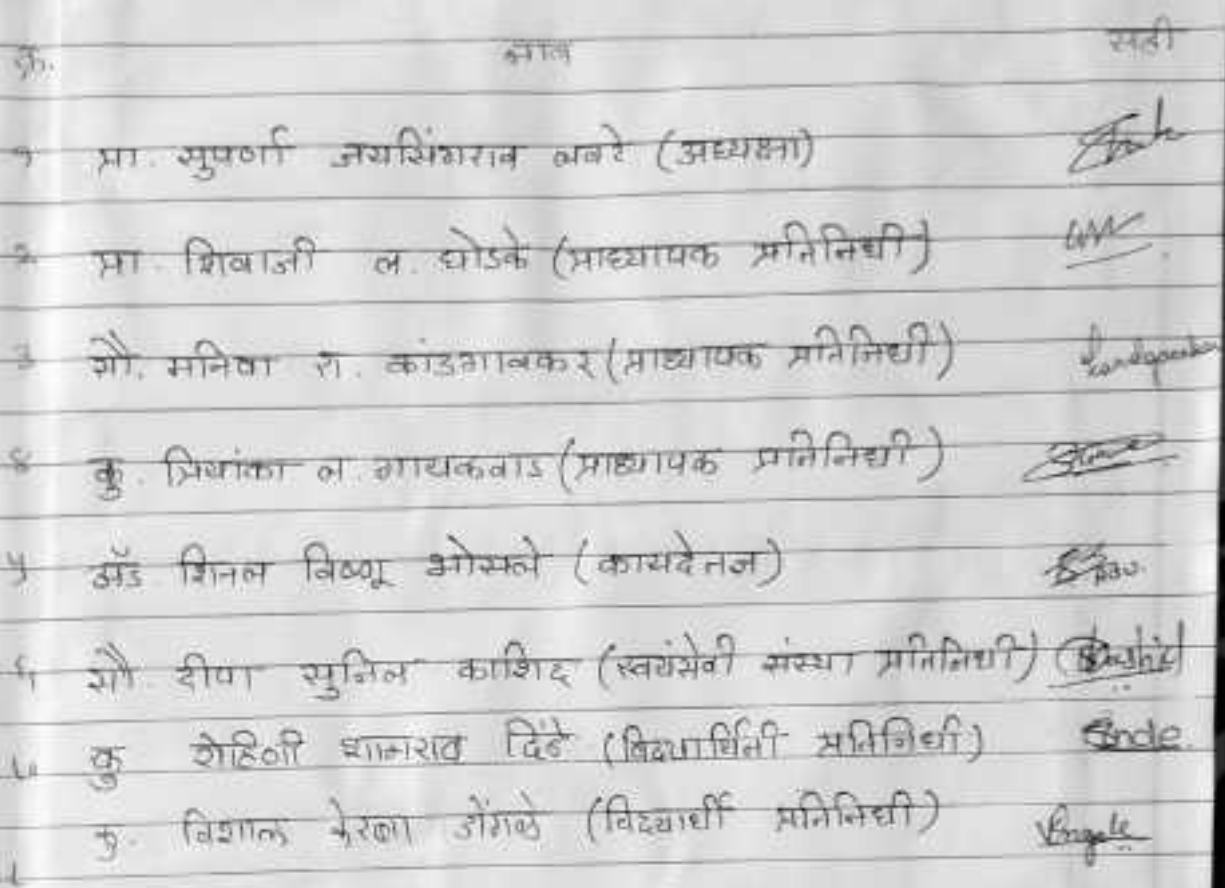 क्र. नाव सही
१ प्रा. सुपर्णा जयसिंगराव खवरे (अध्यक्षा)
२ प्रा. शिवाजी ल. घोडके (प्राध्यापक प्रतिनिधी)
३ सौ. मनिषा रा. कांडगावकर (प्राध्यापक प्रतिनिधी) Kandgaonkar
४ कु. प्रियांका ल. गायकवाड (प्राध्यापक प्रतिनिधी)
५ अॅड शितल विष्णू भोसले (कायदेतज्ञ)
६ सौ. दीपा सुनिल काशिद (स्वयंसेवी संस्था प्रतिनिधी)
७ कु रोहिणी शामराव दिंडे (विद्यार्थिनी प्रतिनिधी)
कु. विशाल केरबा डोंगळे (विद्यार्थी प्रतिनिधी)